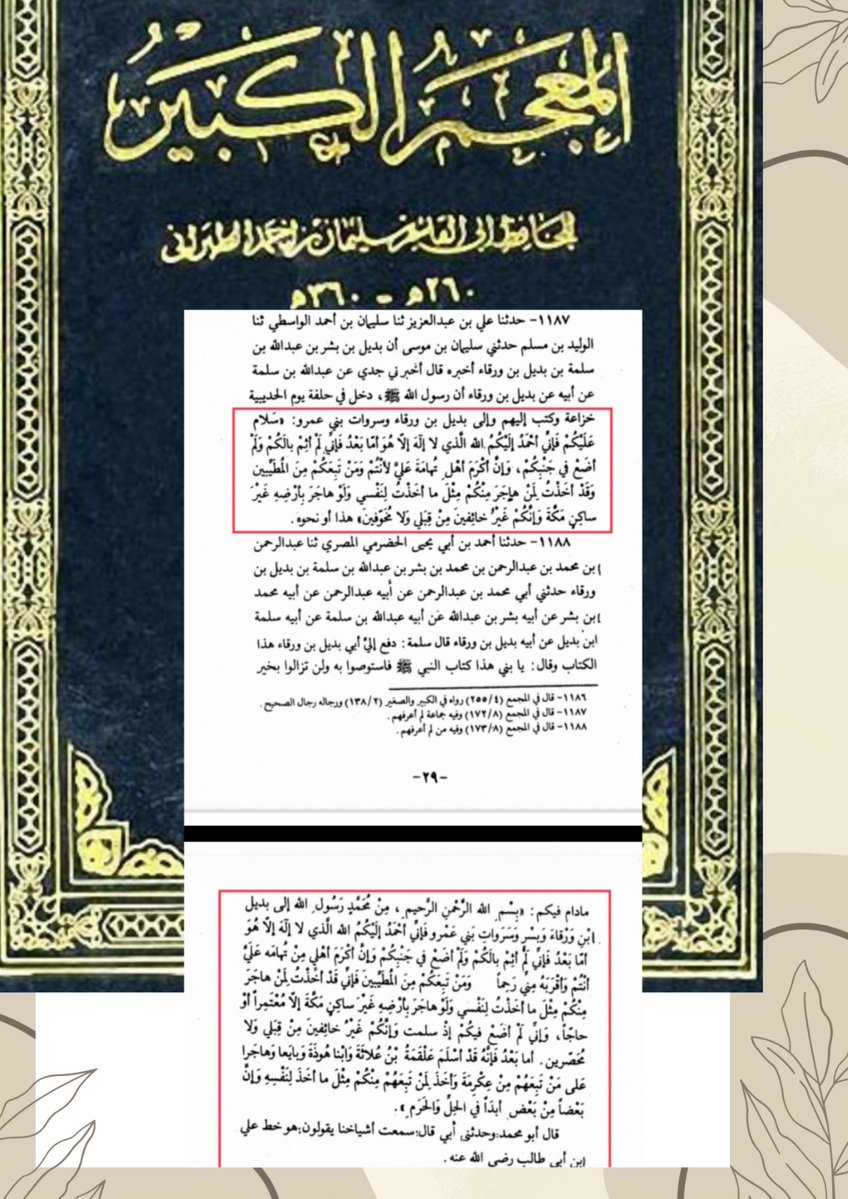 المعجم الكبير
للحافظ أبي القاسم سليمان بن أحمد الطبراني
٢٦٠هـ - ٣٦٠هـ
١١٨٧- حدثنا علي بن عبدالعزيز ثنا سليمان بن أحمد الواسطي ثنا
الوليد بن مسلم حدثني سليمان بن موسى أن بديل بن بشر بن عبدالله بن
سلمة بن بديل بن ورقاء أخبره قال أخبرني جدي عن عبدالله بن سلمة
عن أبيه عن بديل بن ورقاء أن رسول الله ﷺ، دخل في حلفة يوم الحديبية
خزاعة وكتب إليهم وإلى بديل بن ورقاء وسروات بني عمرو: «سَلام
عَلَيْكُمْ فَإنِّي أحْمَدُ إلَيْكُمْ الله الَّذي لا إلَهَ إلَّا هُوَ أمَّا بَعْدُ فَإنِّي لَمْ أثِمْ بالَكُمْ وَلَمْ
أضَعْ في جَنْبِكُمْ، وَإنَّ أكْرَمَ أهْلِ تُهامَةَ عَلَيَّ لأنْتُمْ وَمَنْ تَبِعَكُمْ مِنَ المُطَيَّبين
وَقَدْ أخَذْتُ لِمَنْ هاجَرَ مِنْكُمْ مِثْلَ ما أخَذْتُ لِنَفْسي وَلَوْ هاجَرَ بِأرْضِهِ غَيْرَ
ساكِنِ مَكَّةَ وَإنَّكُمْ غَيْرُ خائِفينَ مِنْ قِبَلي وَلا مُخَوَّفينَ» هذا أو نحوه.
١١٨٨- حدثنا أحمد بن أبي يحيى الحضرمي المصري ثنا عبدالرحمن
بن محمد بن عبدالرحمن بن محمد بن بشر بن عبدالله بن سلمة بن بديل بن
ورقاء حدثني أبي محمد بن عبدالرحمن عن أبيه عبدالرحمن عن أبيه محمد
بن بشر عن أبيه بشر بن عبدالله عن أبيه عبدالله بن سلمة عن أبيه سلمة
ابن بديل عن أبيه بديل بن ورقاء قال سلمة: دفع إليَّ أبي بديل بن ورقاء هذا
الكتاب وقال: يا بني هذا كتاب النبي ﷺ فاستوصوا به ولن تزالوا بخير
١١٨٦- قال في المجمع (٢٥٥/٤) رواه في الكبير والصغير (١٣٨/٢) ورجاله رجال الصحيح.
١١٨٧- قال في المجمع (١٧٢/٨) وفيه جماعة لم أعرفهم.
١١٨٨- قال في المجمع (١٧٣/٨) وفيه من لم أعرفهم.
-٢٩-
مادام فيكم: «بِسْمِ الله الرَّحْمنِ الرَّحيمِ، مِنْ مُحَمَّدٍ رَسُولِ الله إلى بديل
ابْنِ وَرْقاءَ وَبِسْرٍ وَسَرَواتِ بَني عَمْرو فَإنِّي أحْمَدُ إلَيْكُمُ الله الَّذي لا إلَهَ إلَّا هُوَ
أمَّا بَعْدُ فَإنِّي لَمْ أثِمْ بالَكُمْ وَلَمْ أضَعْ في جَنْبِكُمْ وَإنَّ أكْرَمَ أهْلي مِنْ تُهامَه عَلَيَّ
أنْتُمْ وَأقْرَبَهُ مِنِّي رَحِماً وَمَنْ تَبِعَكُمْ مِنَ المُطَيَّبينَ فَإنِّي قَدْ أخَذْتُ لِمَنْ هاجَرَ
مِنْكُمْ مِثْلَ ما أخَذْتُ لِنَفْسي وَلَوْ هاجَرَ بِأرْضِهِ غَيْرَ ساكِنِ مَكَّةَ إلَّا مُعْتَمِراً أوْ
حاجّاً، وَإنِّي لَمْ أضَعْ فيكُمْ إذْ سلمت وَإنَّكُمْ غَيْرُ خائِفينَ مِنْ قِبَلي وَلا
مُحَصَّرين. أما بَعْدُ فَإنَّهُ قَدْ أسْلَمَ عَلْقَمَةُ بْنُ عُلاثَةَ وَابْنا هُوذَةَ وَبايَعا وَهاجَرا
عَلى مَنْ تَبِعَهُمْ مِنْ عِكْرِمَةَ وَأخَذَ لِمَنْ تَبِعَهُمْ مِنْكُمْ مِثْلَ ما أخَذَ لِنَفْسِهِ وَإنَّ
بَعْضاً مِنْ بَعْضٍ أبَدَاً في الحِلِّ وَالحَرَمِ».
قال أبو محمد: وحدثني أبي قال: سمعت أشياخنا يقولون: هو خط علي
ابن أبي طالب رضي الله عنه.